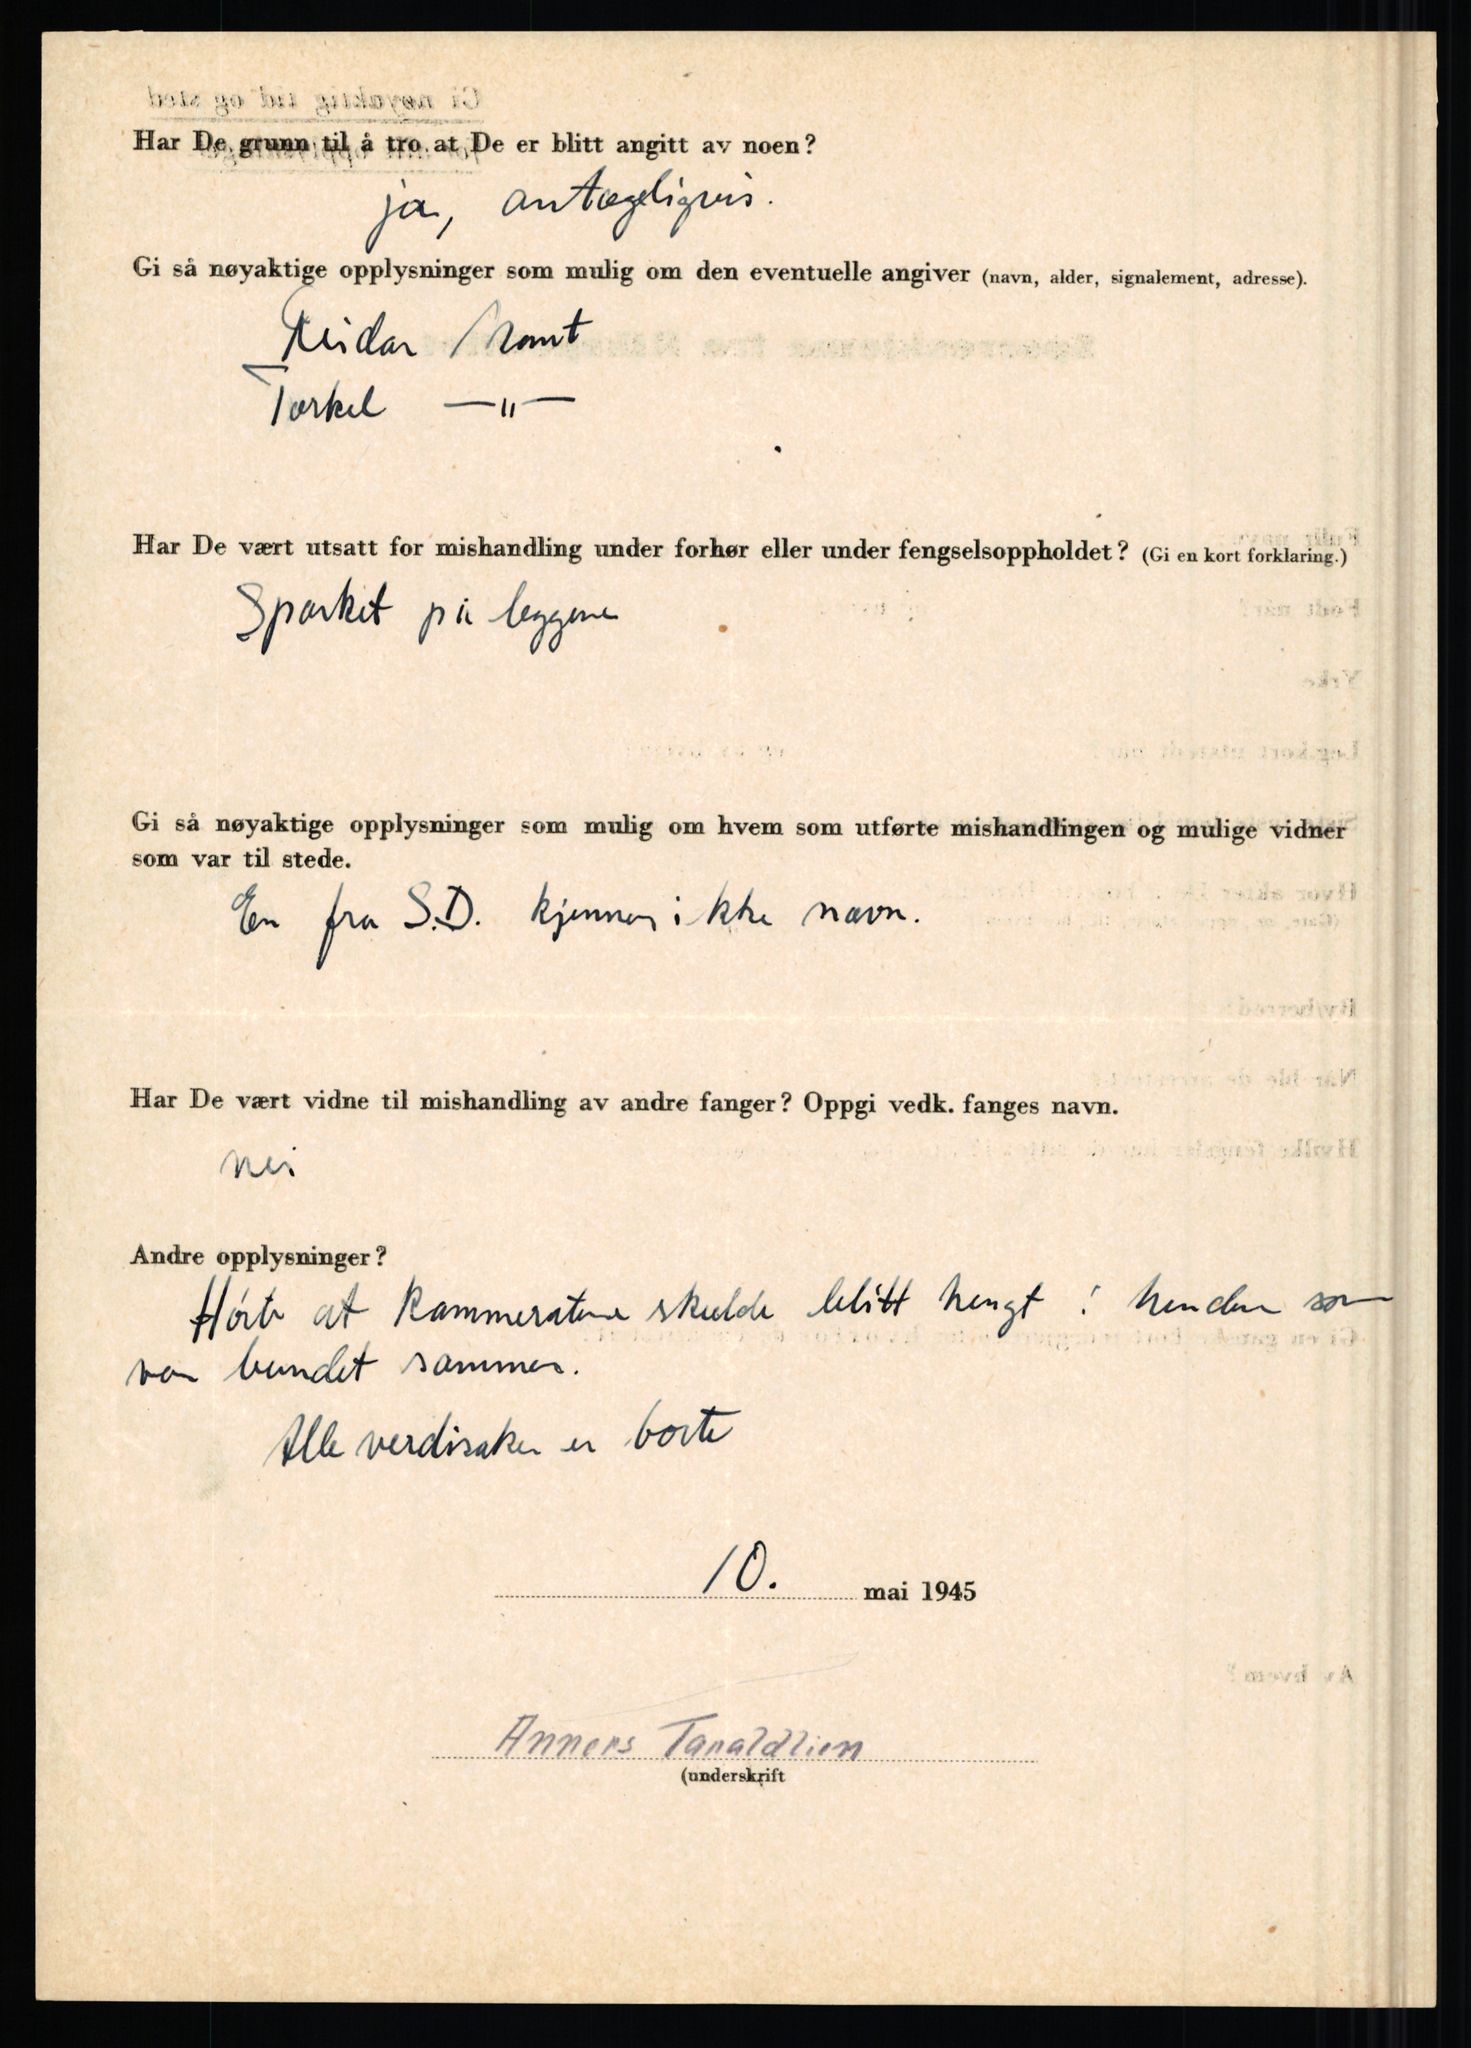 Har De grunn til å tro at De er blitt angitt av noen?
ja, antageligvis.
Gi så nøyaktige opplysninger som mulig om den eventuelle angiver (navn, alder, signalement, adresse).
Reidar
Torkel —"—
Har De vært utsatt for mishandling under forhør eller under fengselsoppholdet? (Gi en kort forklaring.)
Sparket på leggene
Gi så nøyaktige opplysninger som mulig om hvem som utførte mishandlingen og mulige vidner
som var til stede.
En fra S.D. kjenner ikke navn.
Har De vært vidne til mishandling av andre fanger? Oppgi vedk. fanges navn.
nei
Andre opplysninger?
Hørte at kammeratene skulde blitt hengt i henden som
var bundet sammen.
Alle verdisaker er borte
10. mai 1945
Anners Taraldlien
(underskrift